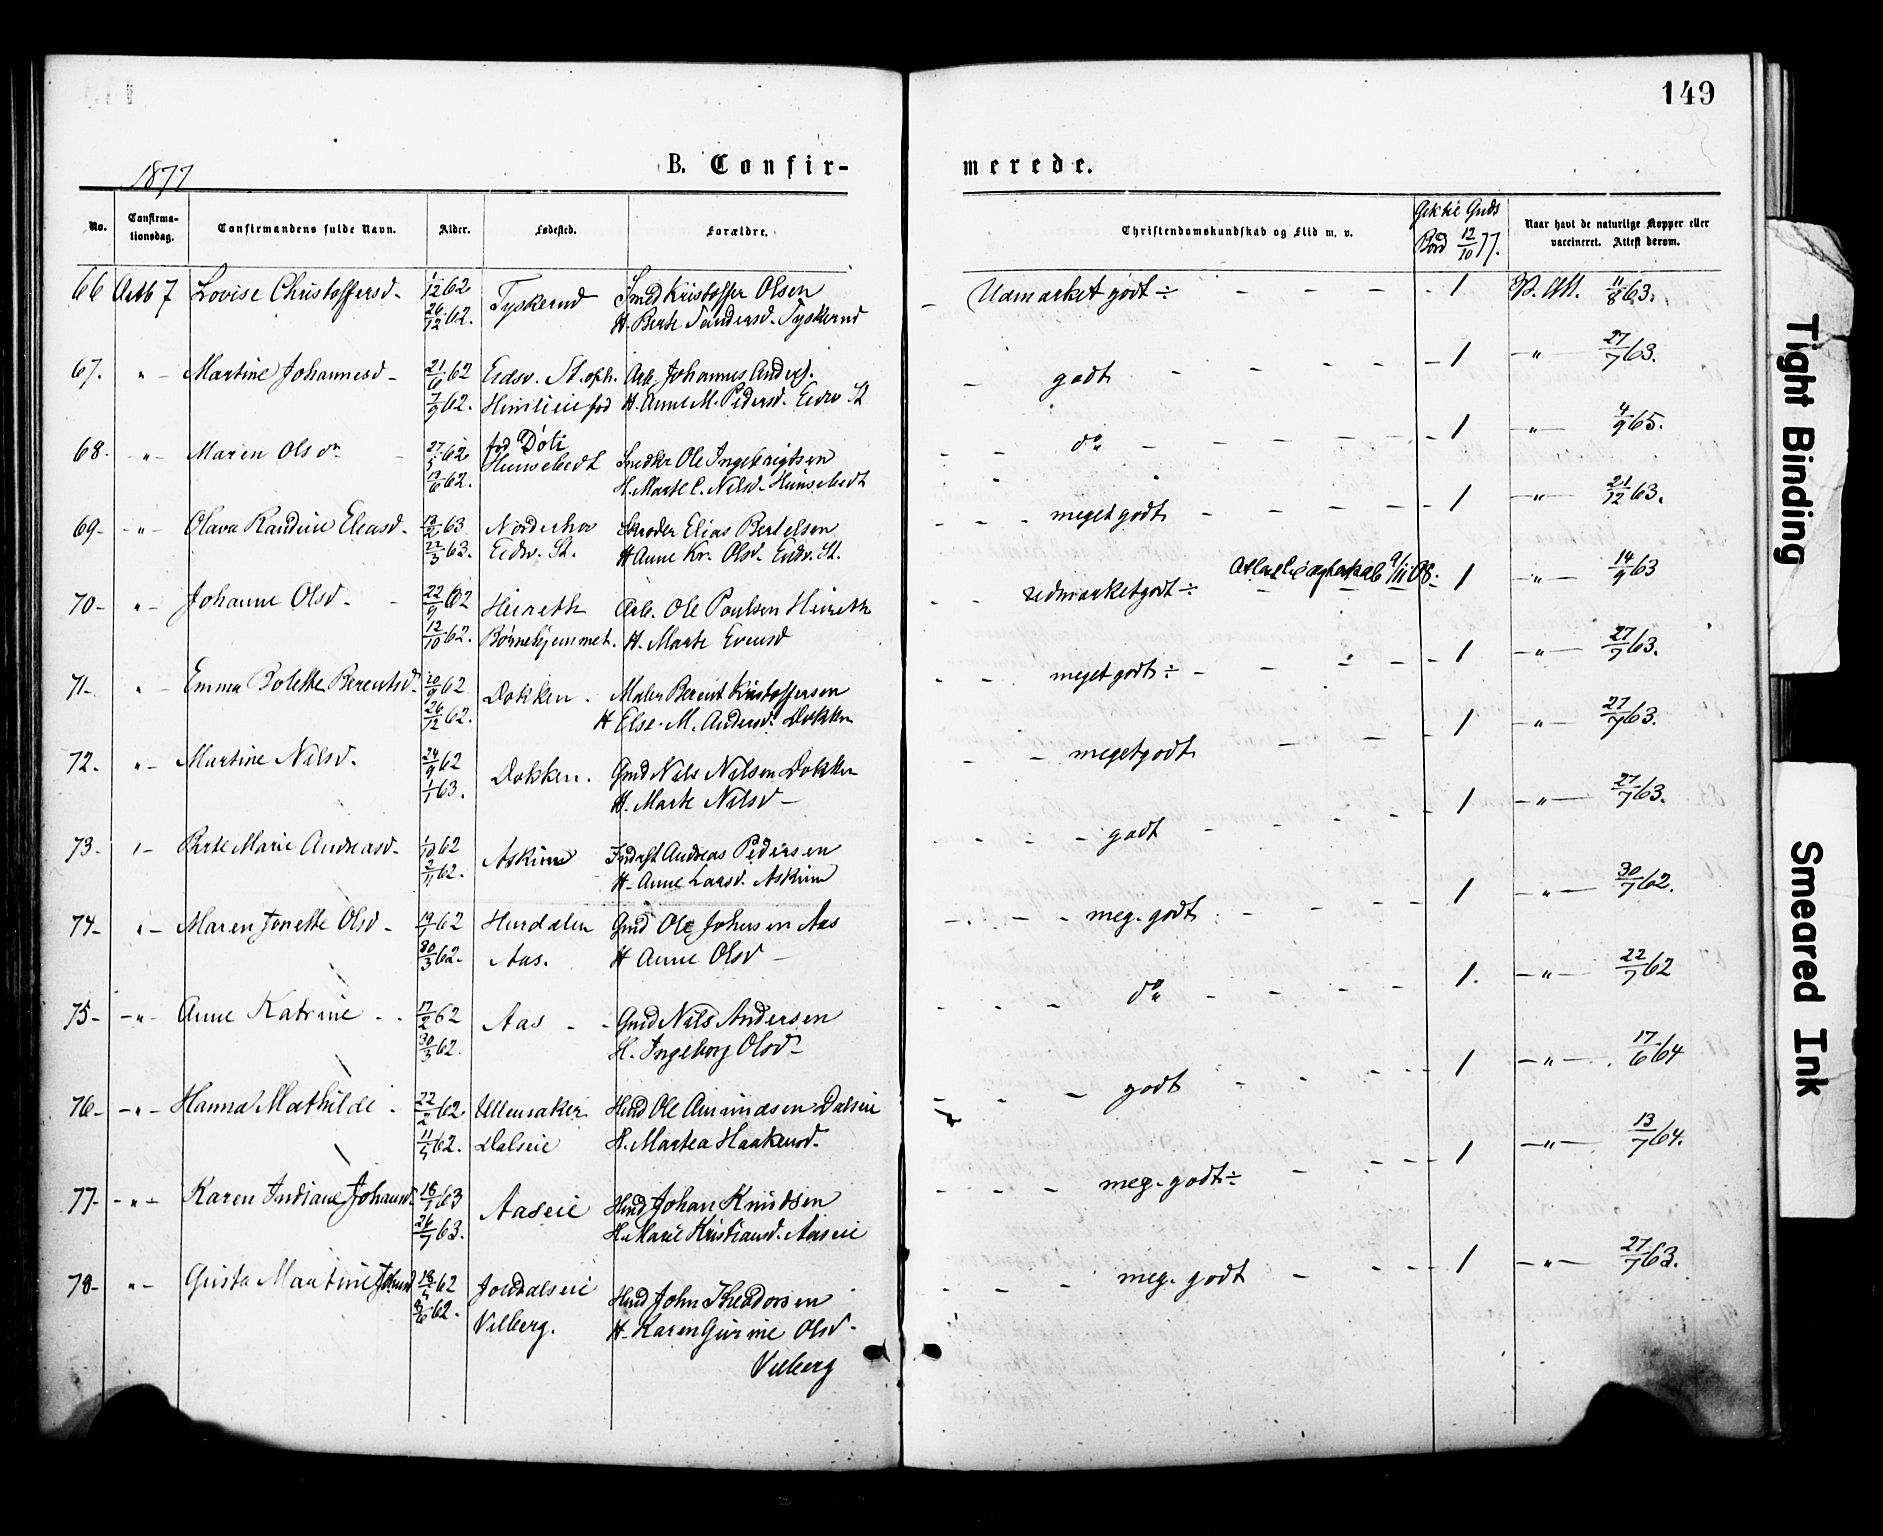 149
1877
B. Confir-
merede.
No.
Confirma-
tionsdag.
Confirmandens fulde Navn.
Alder.
Fødested.
Forældre.
Christendomskundskab og Flid m. v.
Gik til Guds
Bord 12/10 77.
Naar havt de naturlige Kopper eller
vaccineret. Attest derom.
66 Octb 7 Lovise Christoffersd- 1/12 62 Tyskerud Smed Kristoffer Olsen Udmærket godt ÷ 1 11/8 63.
26/12 62. H. Berte Tyskerud
67. " Martine Johannesd- 21/6 62 Eidsv. St. oph. Arb. Johannes Anders. godt 1 " 27/7 63.
7/9 62. fød H. Anne M. Pedersd. Eidsv St
68. " Maren Olsdr 27/5 62. fød Døli Snedker Ole Ingebrigtsen do 1 " 4/9 65.
62. Hunsebedt H. Marte C. Nilsd. Hunsebedt
69- " Olava Randine Eliasd- 63 Nordenhov Skrædder Elias Bertelsen meget godt 1 " 21/12 63.
22/3 63. Eidsv. St. H Anne Kr. Olsd. Eidsv. St.
70- " Johanne Olsd- 22/9 62 Heireth Arb. Ole Poulsen Heireth udmærket godt ÷ 08. 1 " 14/9 63
12/10 62. Børnehjemmet. H. Marte Evensd
71- " Emma Bolette Berentsd. 20/9 62 Dokken. Maler Berent Kristoffersen meget godt ÷ 1 " 27/7 63.
26/12 62. H Else M. Andersd. Dokken
72. " Martine Nilsd. 24/9 62 Dokken. Gmd Nils Nilsen Dokken meget godt 1 " 27/7 63.
1/1 63. H. Marte Nilsd
73- " Berte Marie Andreasd- 1/10 62 Askim Indrst Andreas Pedersen godt 1 " 27/7 63.
2/11 62. H. Anne Larsd. Askim
74- " Maren Jonette Olsd- 19/1 62 Hurdalen Gmd Ole Johnsen Aas meg. godt 1 " 30/7 62.
30/3 62. Aas. H Anne Olsd
75- " Anne Katrine 17/2 62 Aas Gmd Nils Andersen do 1. " 22/7 62
30/3 62. H. Ingeborg Olsd-
76- " Hanna Mathilde 22/2 62 Ullensaker Hmd Ole Amundsen Dalseie godt 1 " 17/6 64
11/5 62. Dalseie H. Martea Haakensd.
77- " Karen Indiane Johansd. 18/1 63 Aaseie Hmd Johan Knudsen meg. godt ÷ 1 " 13/7 64.
26/7 63. H. Marie Kristiansd. Aaseie
78- " Gusta Martine Johnsd 18/5 62 Jondalseie Hmd John Theodorsen meg. godt 1 " 27/7 63.
62. Vilberg. H. Karen Gurine Olsd.
Vilberg
Tight Binding
Smeared Ink